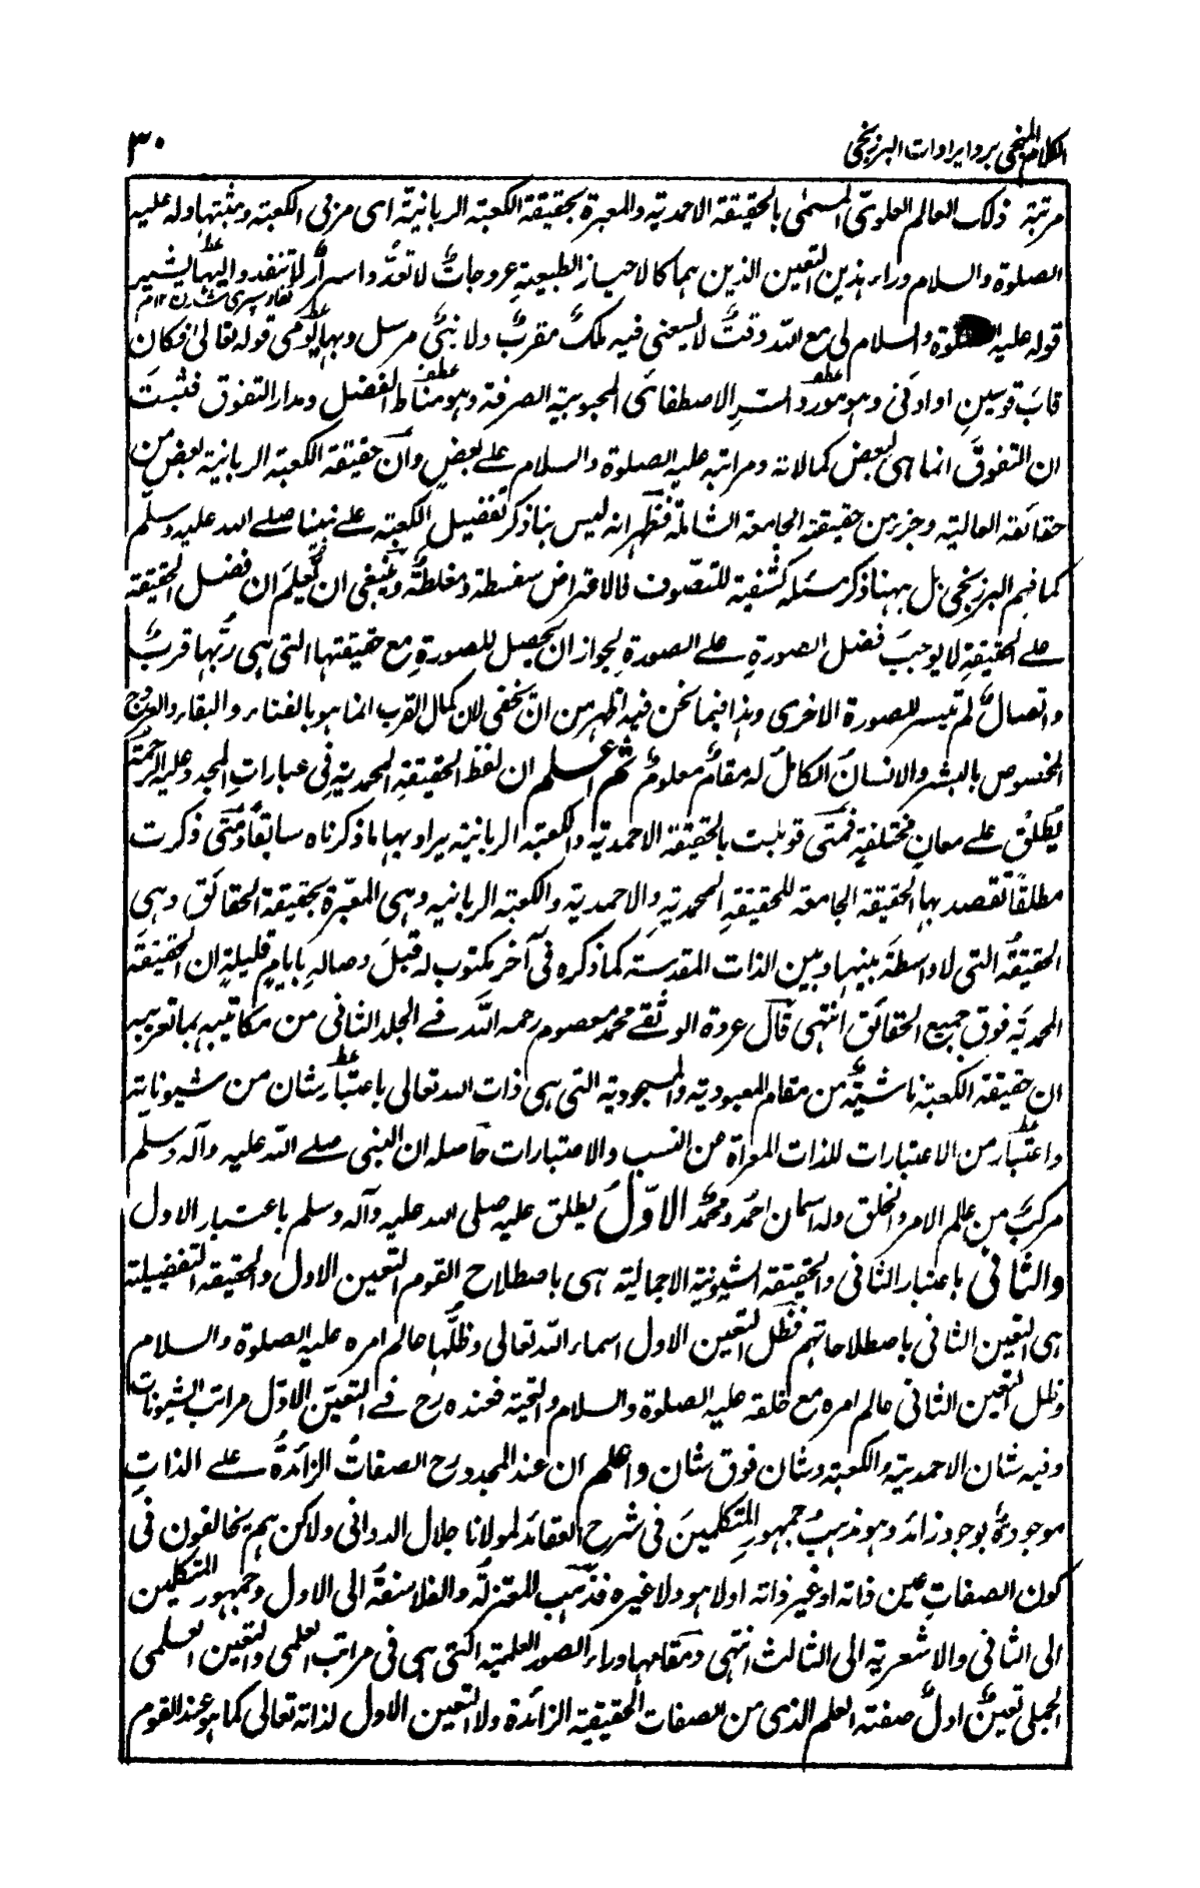 الكلام المنجي برد ايرادات البرزنجي
٣٠
مرتبة ذلك العالم العلوي المسمى بالحقيقة الاحمدية والمعبرة بحقيقة الكعبة الربانية اى مربى الكعبة ومثبتها وله عليه
الصلوة والسلام وراء هذين التعين الذين هما كالاحياز الطبيعية عروجات لا تعد واسرار لا تنفد واليها يشير
قوله عليه الصلوة والسلام لى مع الله وقت لا يسعنى فيه ملك مقرب ولا نبى مرسل وبها يومى قوله تعالى فكان
قاب قوسين او ادنى وهو مورد السر الاصطفائى المحبوبية الصرفة وهو مناط الفضل ومدار التفوق فثبت
ان التفوق انما هى لبعض كمالاته ومراتبه عليه الصلوة والسلام على بعض وان حقيقة الكعبة الربانية بعض من
حقائقه العالية وجزء من حقيقة الجامعة الشاملة فظهر انه ليس بنا ذكر تفضيل الكعبة على نبينا صلى الله عليه وسلم
كما فهم البرزنجى بل ههنا ذكر مسئلة كشفية للتصوف فالاعتراض سفسطة ومغلطة وينبغى ان يعلم ان فضل الحقيقة
على الحقيقة لا يوجب فضل الصورة على الصورة لجواز ان يحصل للصورة مع حقيقتها التى هى ربها قرب
واتصال لم تيسر للصورة الاخرى وهذا فيما نحن فيه اظهر من ان يخفى لان كمال القرب انما هو بالفناء والبقاء والعروج
المخصوص بالبشر والانسان الكامل له مقام معلوم ثم اعلم ان لفظ الحقيقة المحمدية فى عبارات المجدد عليه الرحمة
يطلق على معان مختلفة فمتى قوبلت بالحقيقة الاحمدية والكعبة الربانية يراد بها ما ذكرناه سابقا ومتى ذكرت
مطلقا تقصد بها الحقيقة الجامعة للحقيقة المحمدية والاحمدية والكعبة الربانيه وهى المعبرة بحقيقة الحقائق وهى
الحقيقة التى لا واسطة بينها وبين الذات المقدسة كما ذكره فى آخر مكتوب له قبل وصاله بايام قليلة ان الحقيقة
المحمدية فوق جميع الحقائق انتهى قال عروة الوثقى محمد معصوم رحمه الله فى الجلد الثانى من مكاتيبه بما تعريبه
ان حقيقة الكعبة ناشية من مقام المعبودية والمسجودية التى هى ذات الله تعالى باعتبار شان من شيوناته
واعتبار من الاعتبارات للذات المعراة من النسب والاعتبارات حاصله ان النبى صلى الله عليه وآله وسلم
مركب من عالم الامر والخلق وله اسمان احمد ومحمد الاول يطلق عليه صلى الله عليه وآله وسلم باعتبار الاول
والثانى باعتبار الثانى والحقيقة الشيونية الاجمالية هى باصطلاح القوم التعين الاول والحقيقة التفضيلية
هى التعين الثانى باصطلاحاتهم فظل التعين الاول اسماء الله تعالى وظلها عالم امره عليه الصلوة والسلام
وظل التعين الثانى عالم امره مع خلقه عليه الصلوة والسلام والتحية فعنده رح فى التعين الاول مراتب الشيونات
وفيه شان الاحمدية والكعبة وشان فوق شان واعلم ان عند المجدد رح الصفات الزائدة على الذات
موجودة بوجود زائد وهو مذهب جمهور المتكلمين فى شرح العقائد لمولانا جلال الدوانى ولاكن هم يخالفون فى
كون الصفات عين ذاته او غير ذاته اولا هو ولا غيره فذهب المعتزلة والفلاسفة الى الاول وجمهور المتكلمين
الى الثانى والاشعرية الى الثالث انتهى ومقامها وراء الصور العلمية التى هى فى مراتب العلمى والتعين العلمى
الجملى تعين اول صفته العلم الذى من الصفات الحقيقية الزائدة ولا التعين الاول لذاته تعالى كما هو عند القوم